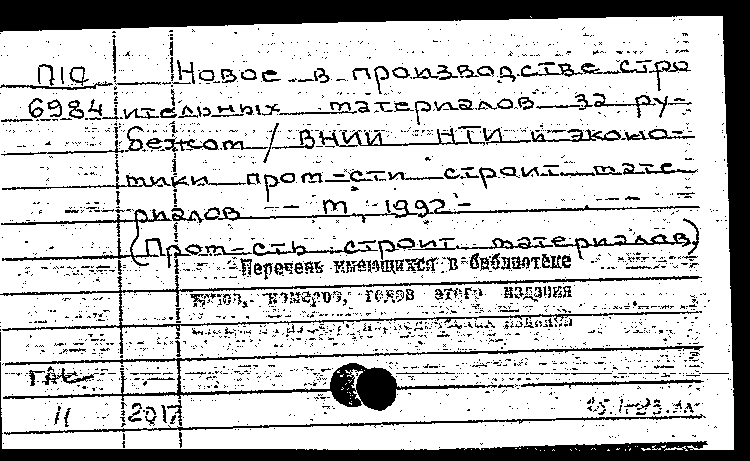 П10 Новое в производстве стро
6984 ительных материалов за ру-
бежом / ВНИИ НТИ и эконо-
мики пром-сти строит. мате-
риалов. - М., 1992 -
(Пром-сть строит. материалов)
Перечень имеющихся в библиотеке
томов, номеров, годов этого издания
11 2017